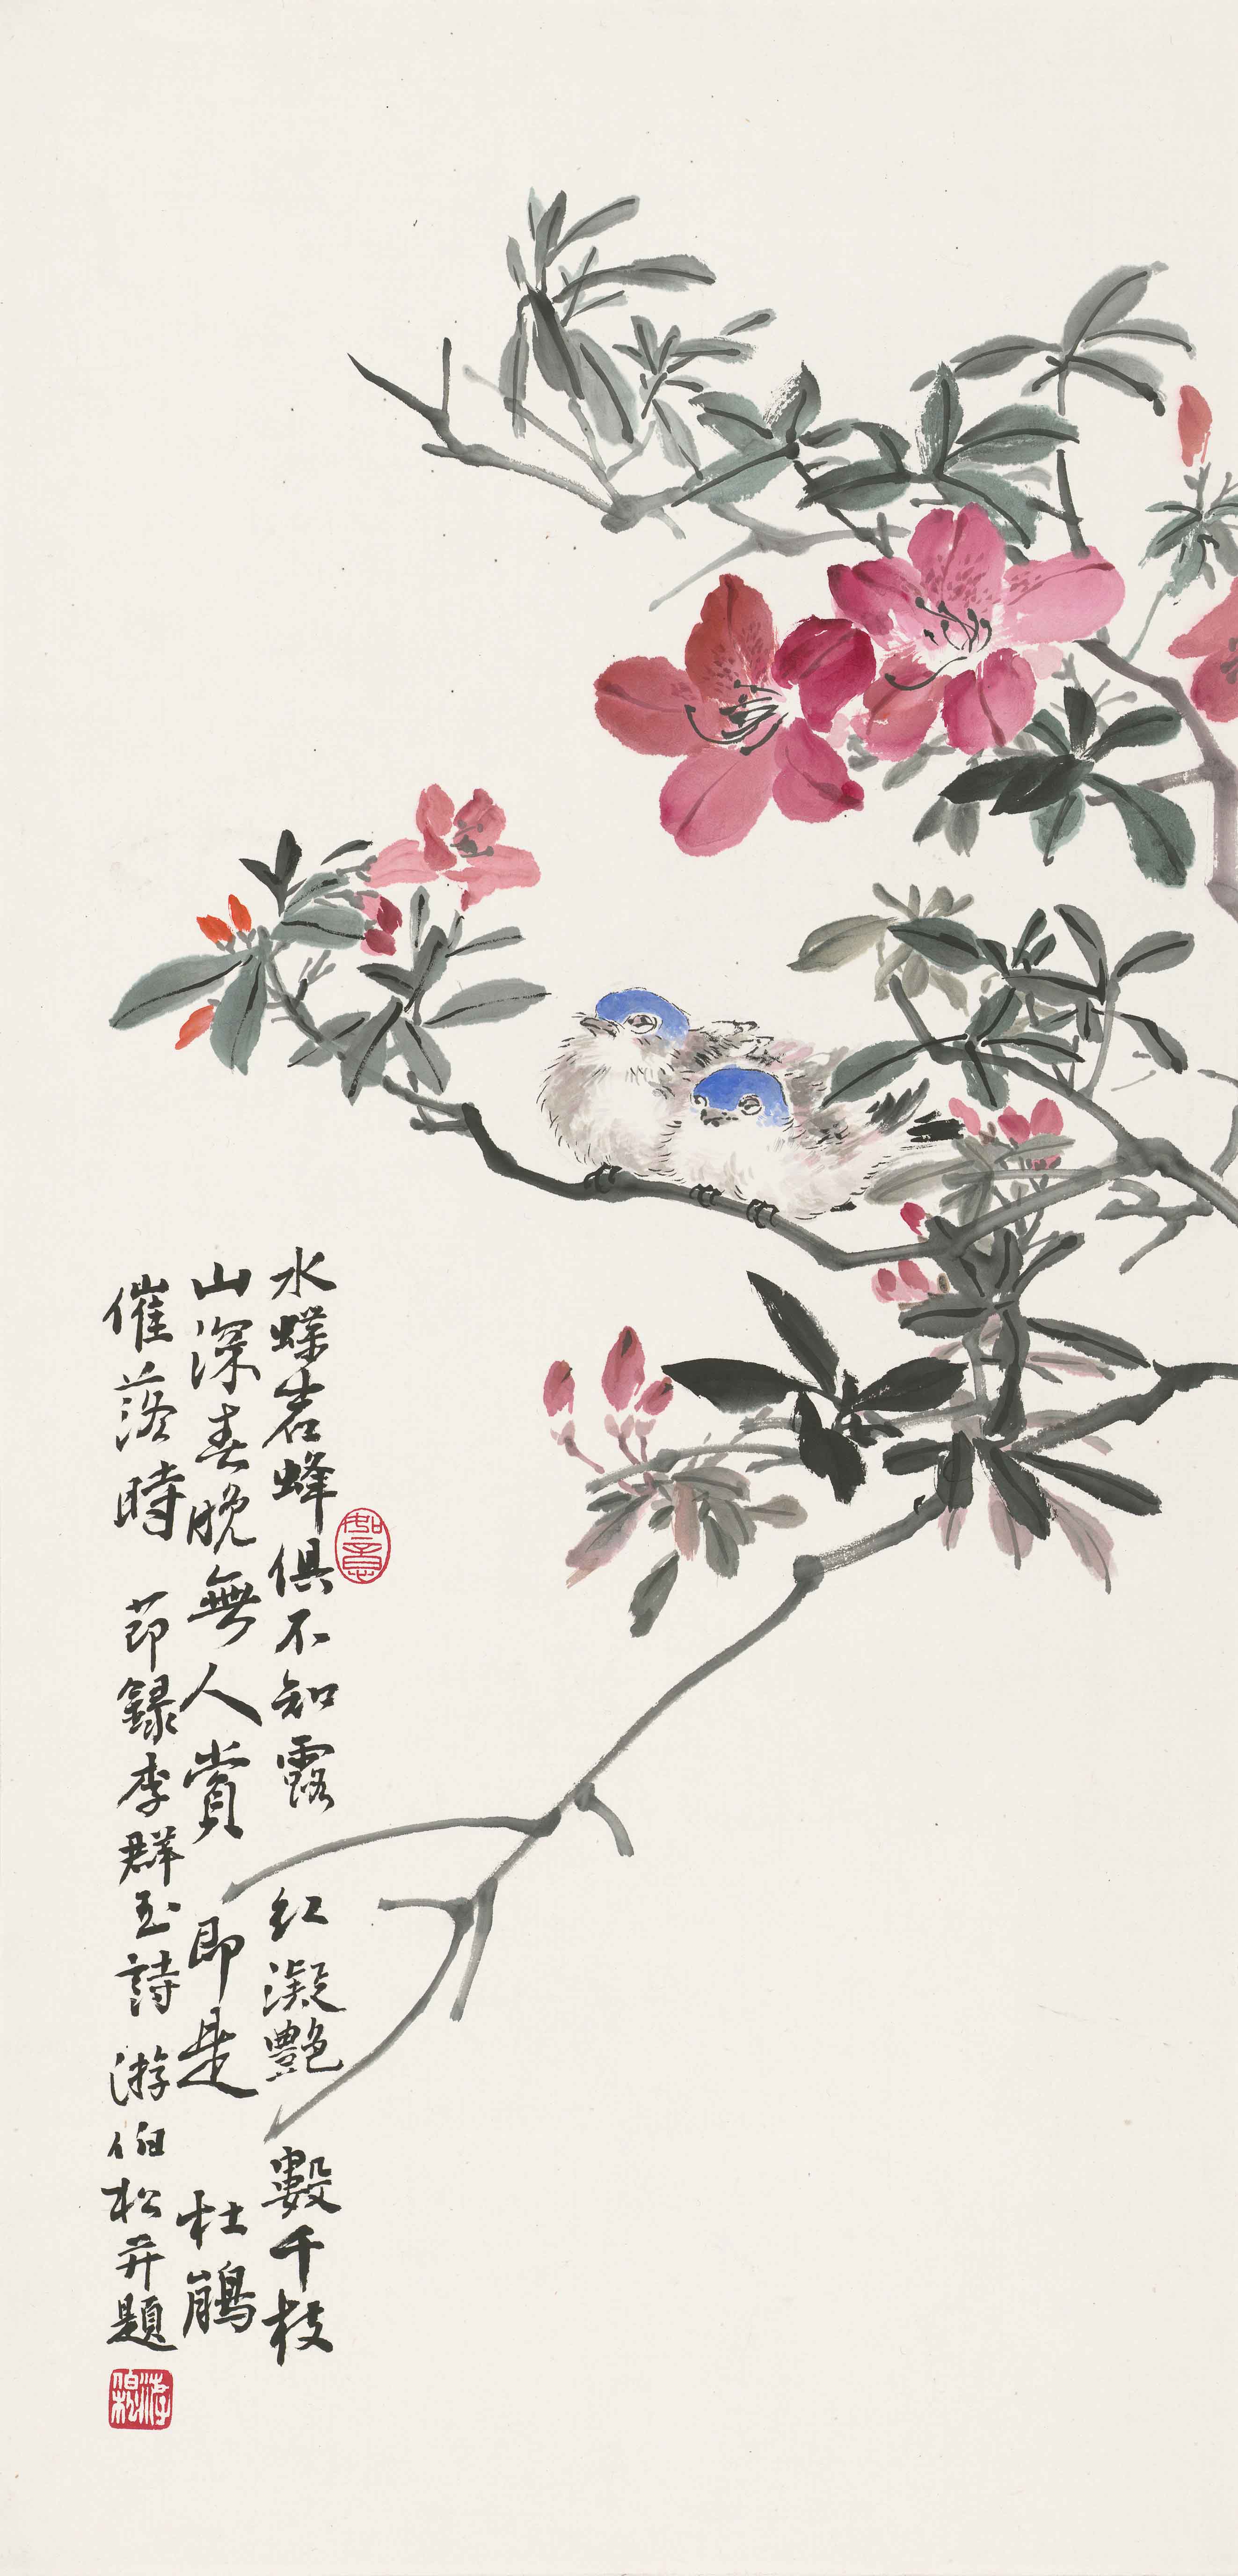 水蝶岩蜂俱不知露紅凝艷數千枝
山深春晚無人賞即是杜鵑
催落時 節錄李群玉詩 游伯松并題
游伯松